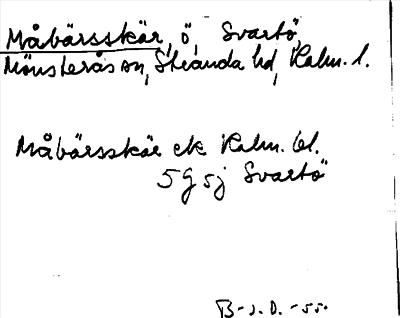 Måbärsskär, ö, Svartö,
Mönsterås sn, Stranda hd, Kalm. l.
Måbärsskär ek Kalm. bl.
5 G sj Svartö
B-J.D. -55.